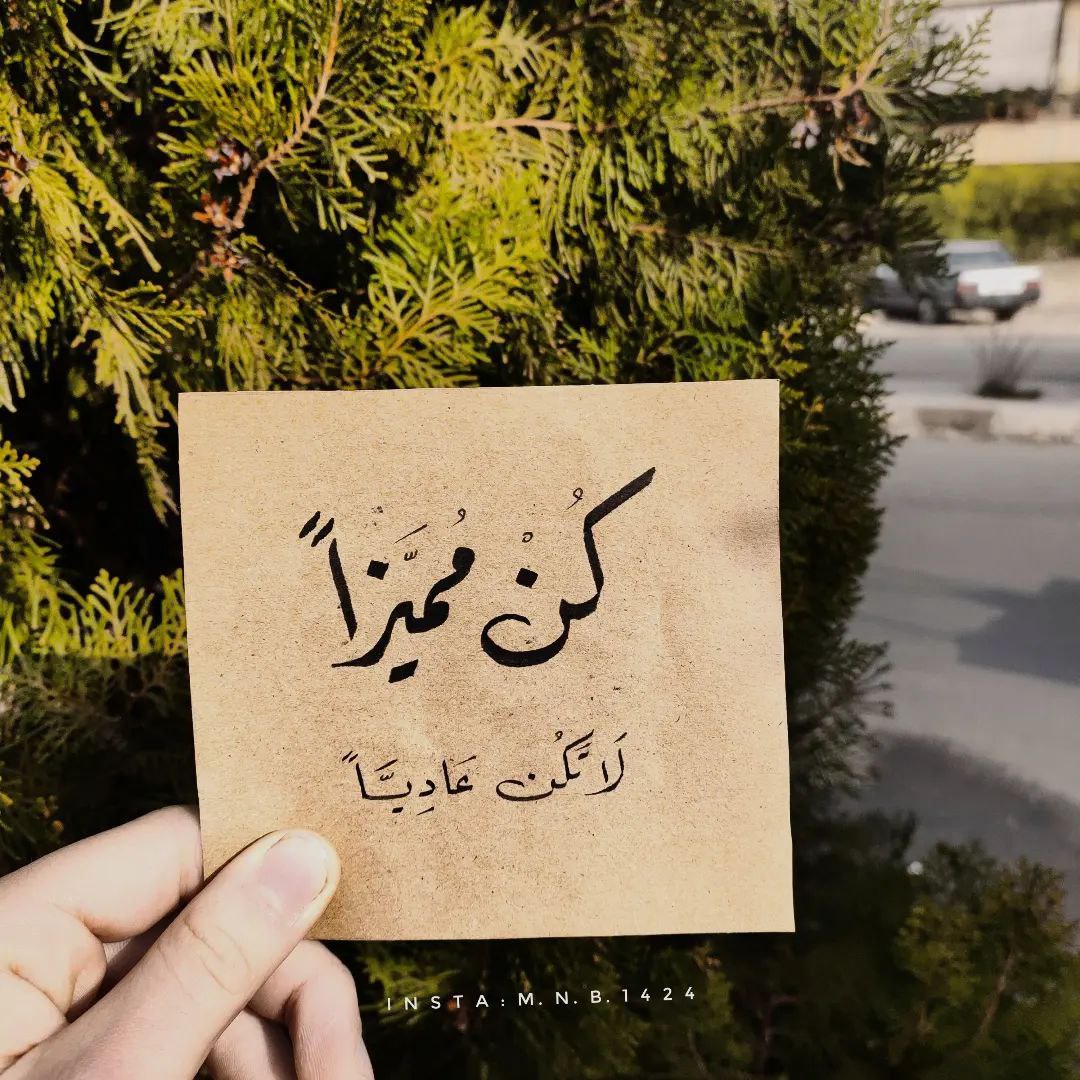 كُنْ مُمَيَّزاً
لَا تَكُن عَادِيَّاً
INSTA:M.N.B.1424